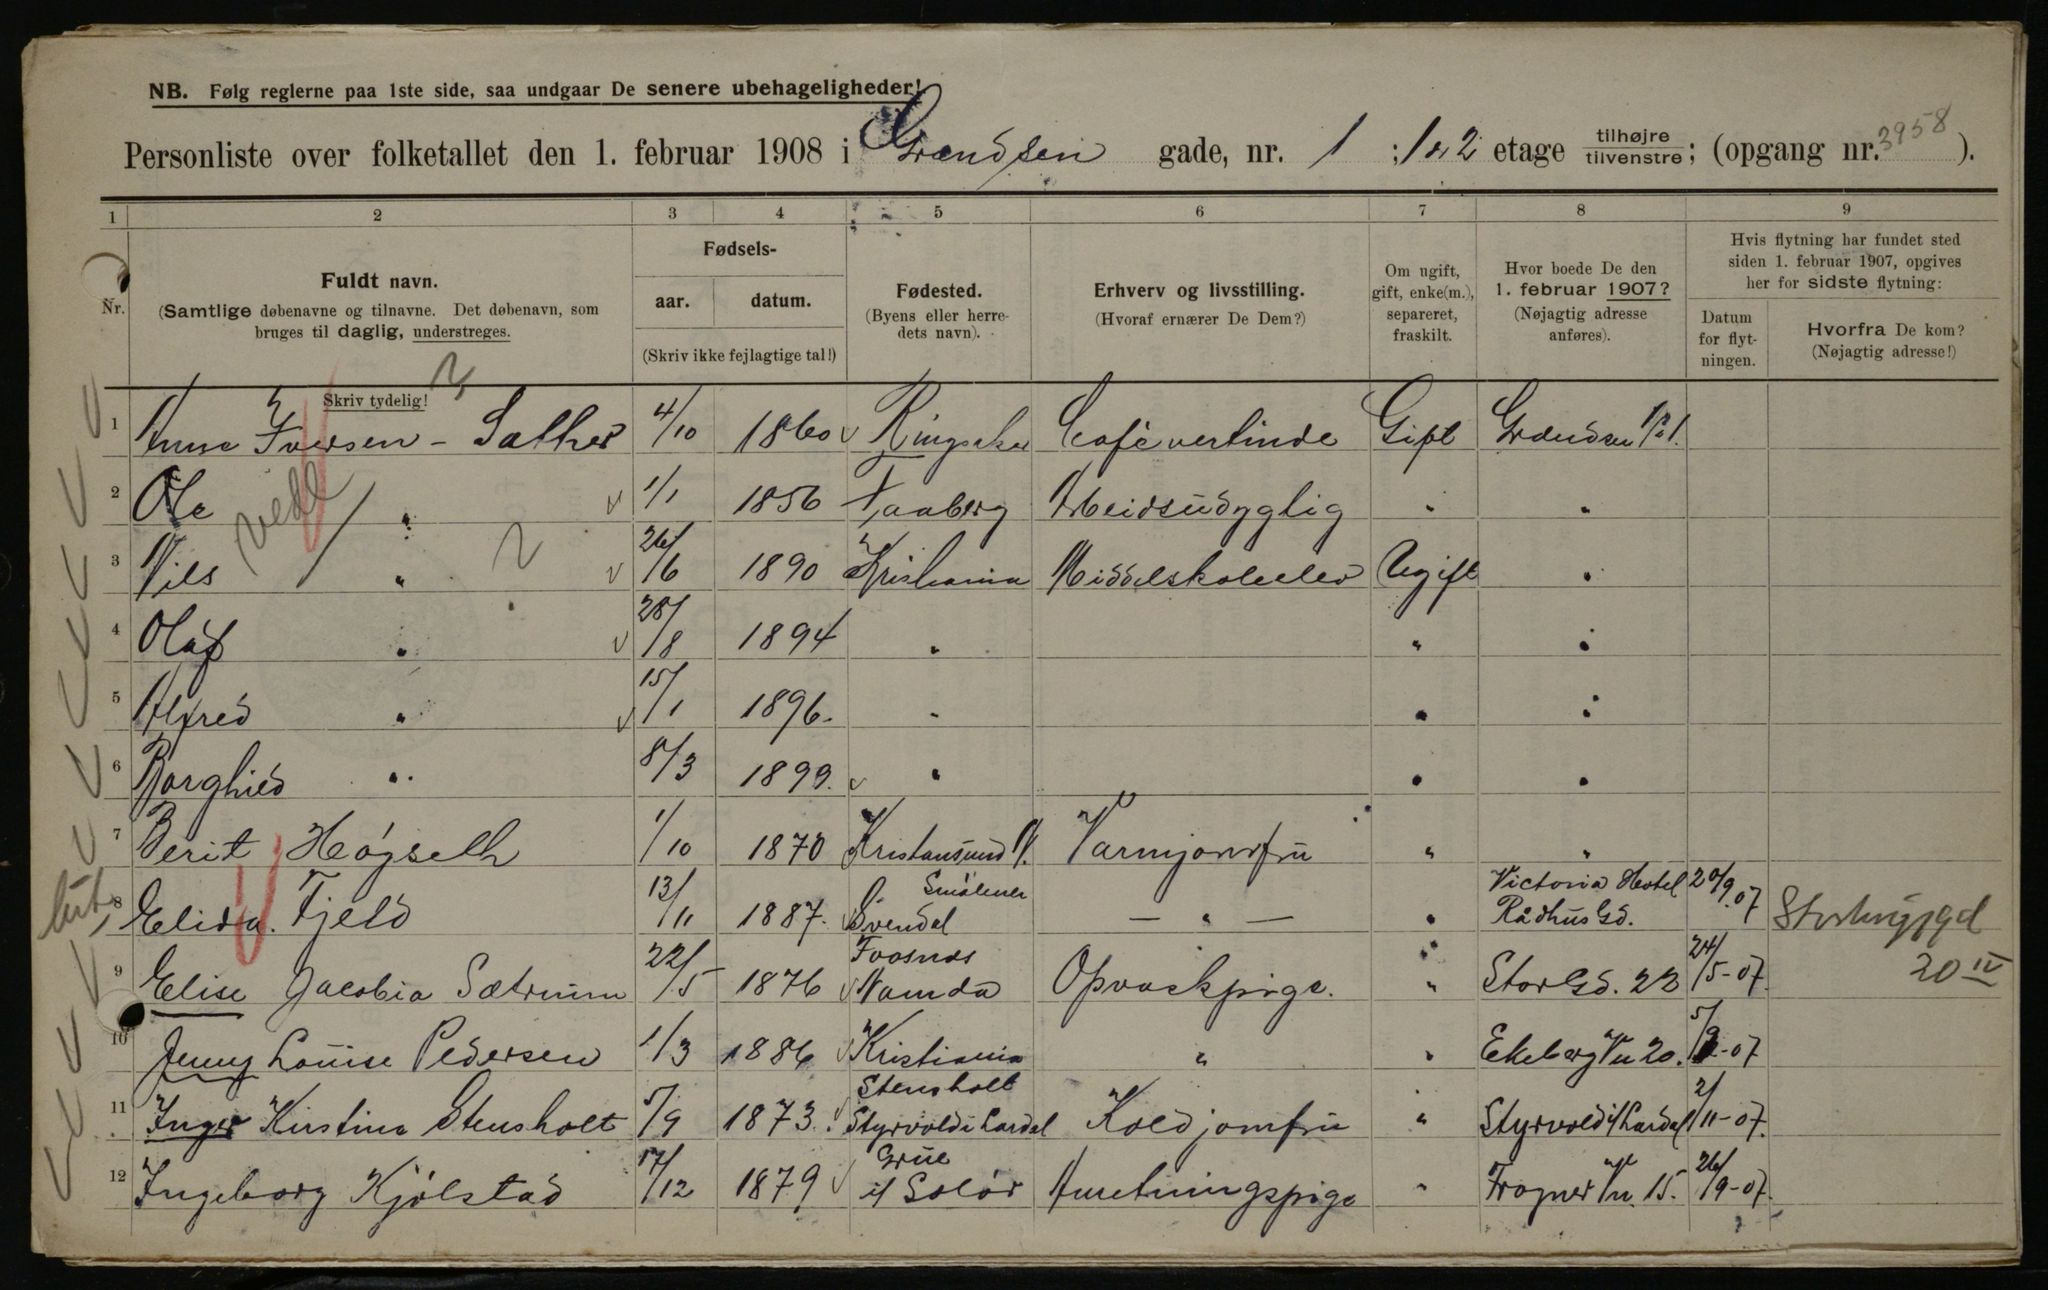 NB. Følg reglerne paa 1ste side, saa undgaar De senere ubehageligheder!
Personliste over folketallet den 1. februar 1908 i Grændsen gade, nr. 1 ; 1 & 2 etage tilhøjre tilvenstre; (opgang nr. 3958 ).
1 2 3 4 5 6 7 8 9
Nr.
Fuldt navn.
(Samtlige døbenavne og tilnavne. Det døbenavn, som
bruges til daglig, understreges.
Skriv tydelig!
Fødsels-
aar. datum.
(Skriv ikke fejlagtige tal!)
Fødested.
(Byens eller herre-
dets navn).
Erhverv og livsstilling.
(Hvoraf ernærer De Dem?)
Om ugift,
gift, enke(m.),
separeret,
fraskilt.
Hvor boede De den
1. februar 1907?
(Nøjagtig adresse
anføres).
Hvis flytning har fundet sted
siden 1. februar 1907, opgives
her for sidste flytning:
Datum
for flyt-
ningen.
Hvorfra De kom?
(Nøjagtig adresse!)
1 Anna Iversen - Sæther 4/10 1860 Ringsaker Caféværtinde Gift Grændsen
2 Ole " 1/1 1856 Faaberg Arbeidsudygtig " "
3 Nils " 26/6 1890 Kristiania Middelskoleelev Ugift "
4 Olaf " 28/8 1894 " " "
5 Alfred " 15/1 1896. " " "
6 Borghild " 8/3 1899. " " "
7 Berit Høgseth 1/10 1870 Kristiansund N. Varmjomfru " "
8 Elida Fjeld 13/11 1887. Smålenene - " - " Victoria Hotel 20/9.07
Rådhusgd.
9 Elise Jacobia Sætrum 22/5 1876 Foosnæs Opvaskpige. " Storgd. 22 24/5-07.
10 Jenny Louise Pedersen 1/3 1886 Kristiania " " Ekebergvn 20. -07
11 Inger Kirstine Stensholt 5/9 1873. Stensholt
Styrvold i Lardal Koldjomfru " Styrvold i Lardal 2/11-07.
12 Ingeborg Kjølstad 17/12 1879 Grue
i Solør Anretningspige " Frognervn. 15. 26/9-07.
20 IV